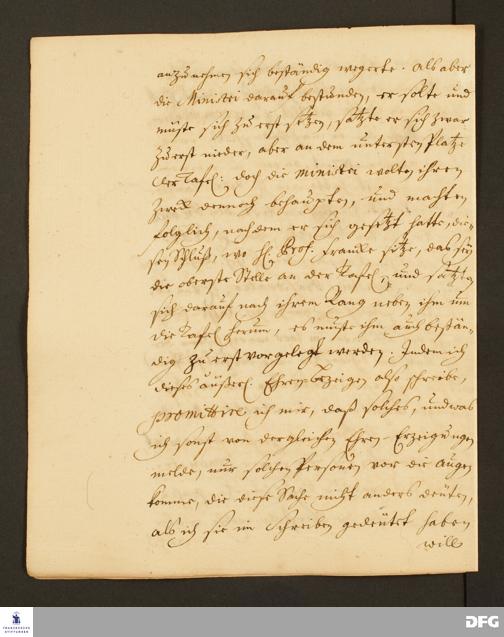 anzunehmen sich beständig wegerte. Als aber
die Ministri darauf bestunden, er solte und
müste sich zu erst setzen, satzte er sich zwar
zu erst nieder, aber an dem untersten Platze
der Tafel: doch die Ministri wolten ihren
Zweck dennoch behaupten, und machten
folglich, nachdem er sich gesetzt hatte, die-
sen Schluß, wo H. Prof. Francke sitze, das sey
die oberste Stelle an der Tafel, und satzten
sich darauf nach ihrem Rang neben ihm um
die Tafel herum, es muste ihm auch bestän-
dig zu erst vorgelegt werden: Indem ich
dieses äußerl. Ehren-Bezeigen also schreibe,
promittire ich mir, daß solches, und was
ich sonst von dergleichen Ehren-Erzeigungen
melde, nur solchen Personen vor die Augen
komme, die diese Sache nicht anders deuten,
als ich sie im Schreiben gedeutet haben
will
FRANCKESCHE
STIFTUNGEN
DFG